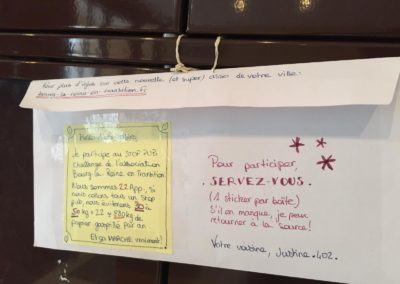 Pour plus d'infos sur cette nouvelle (et super) asso de votre ville:
bourg-la-reine-en-transition.fr
Je participe au STOP PUB
Challenge de l'association
Bourg-la-Reine en Transition
Nous sommes 22 App, si
nous collons tous un Stop
pub, nous éviterons
kg × 22 =
papier gaspillé par an
Et ça MARCHE vraiment!
Pour participer,
. SERVEZ-VOUS.
(1 sticker par boîte)
S'il en manque, je peux
retourner à la source!
Votre voisine, Justine. 402.